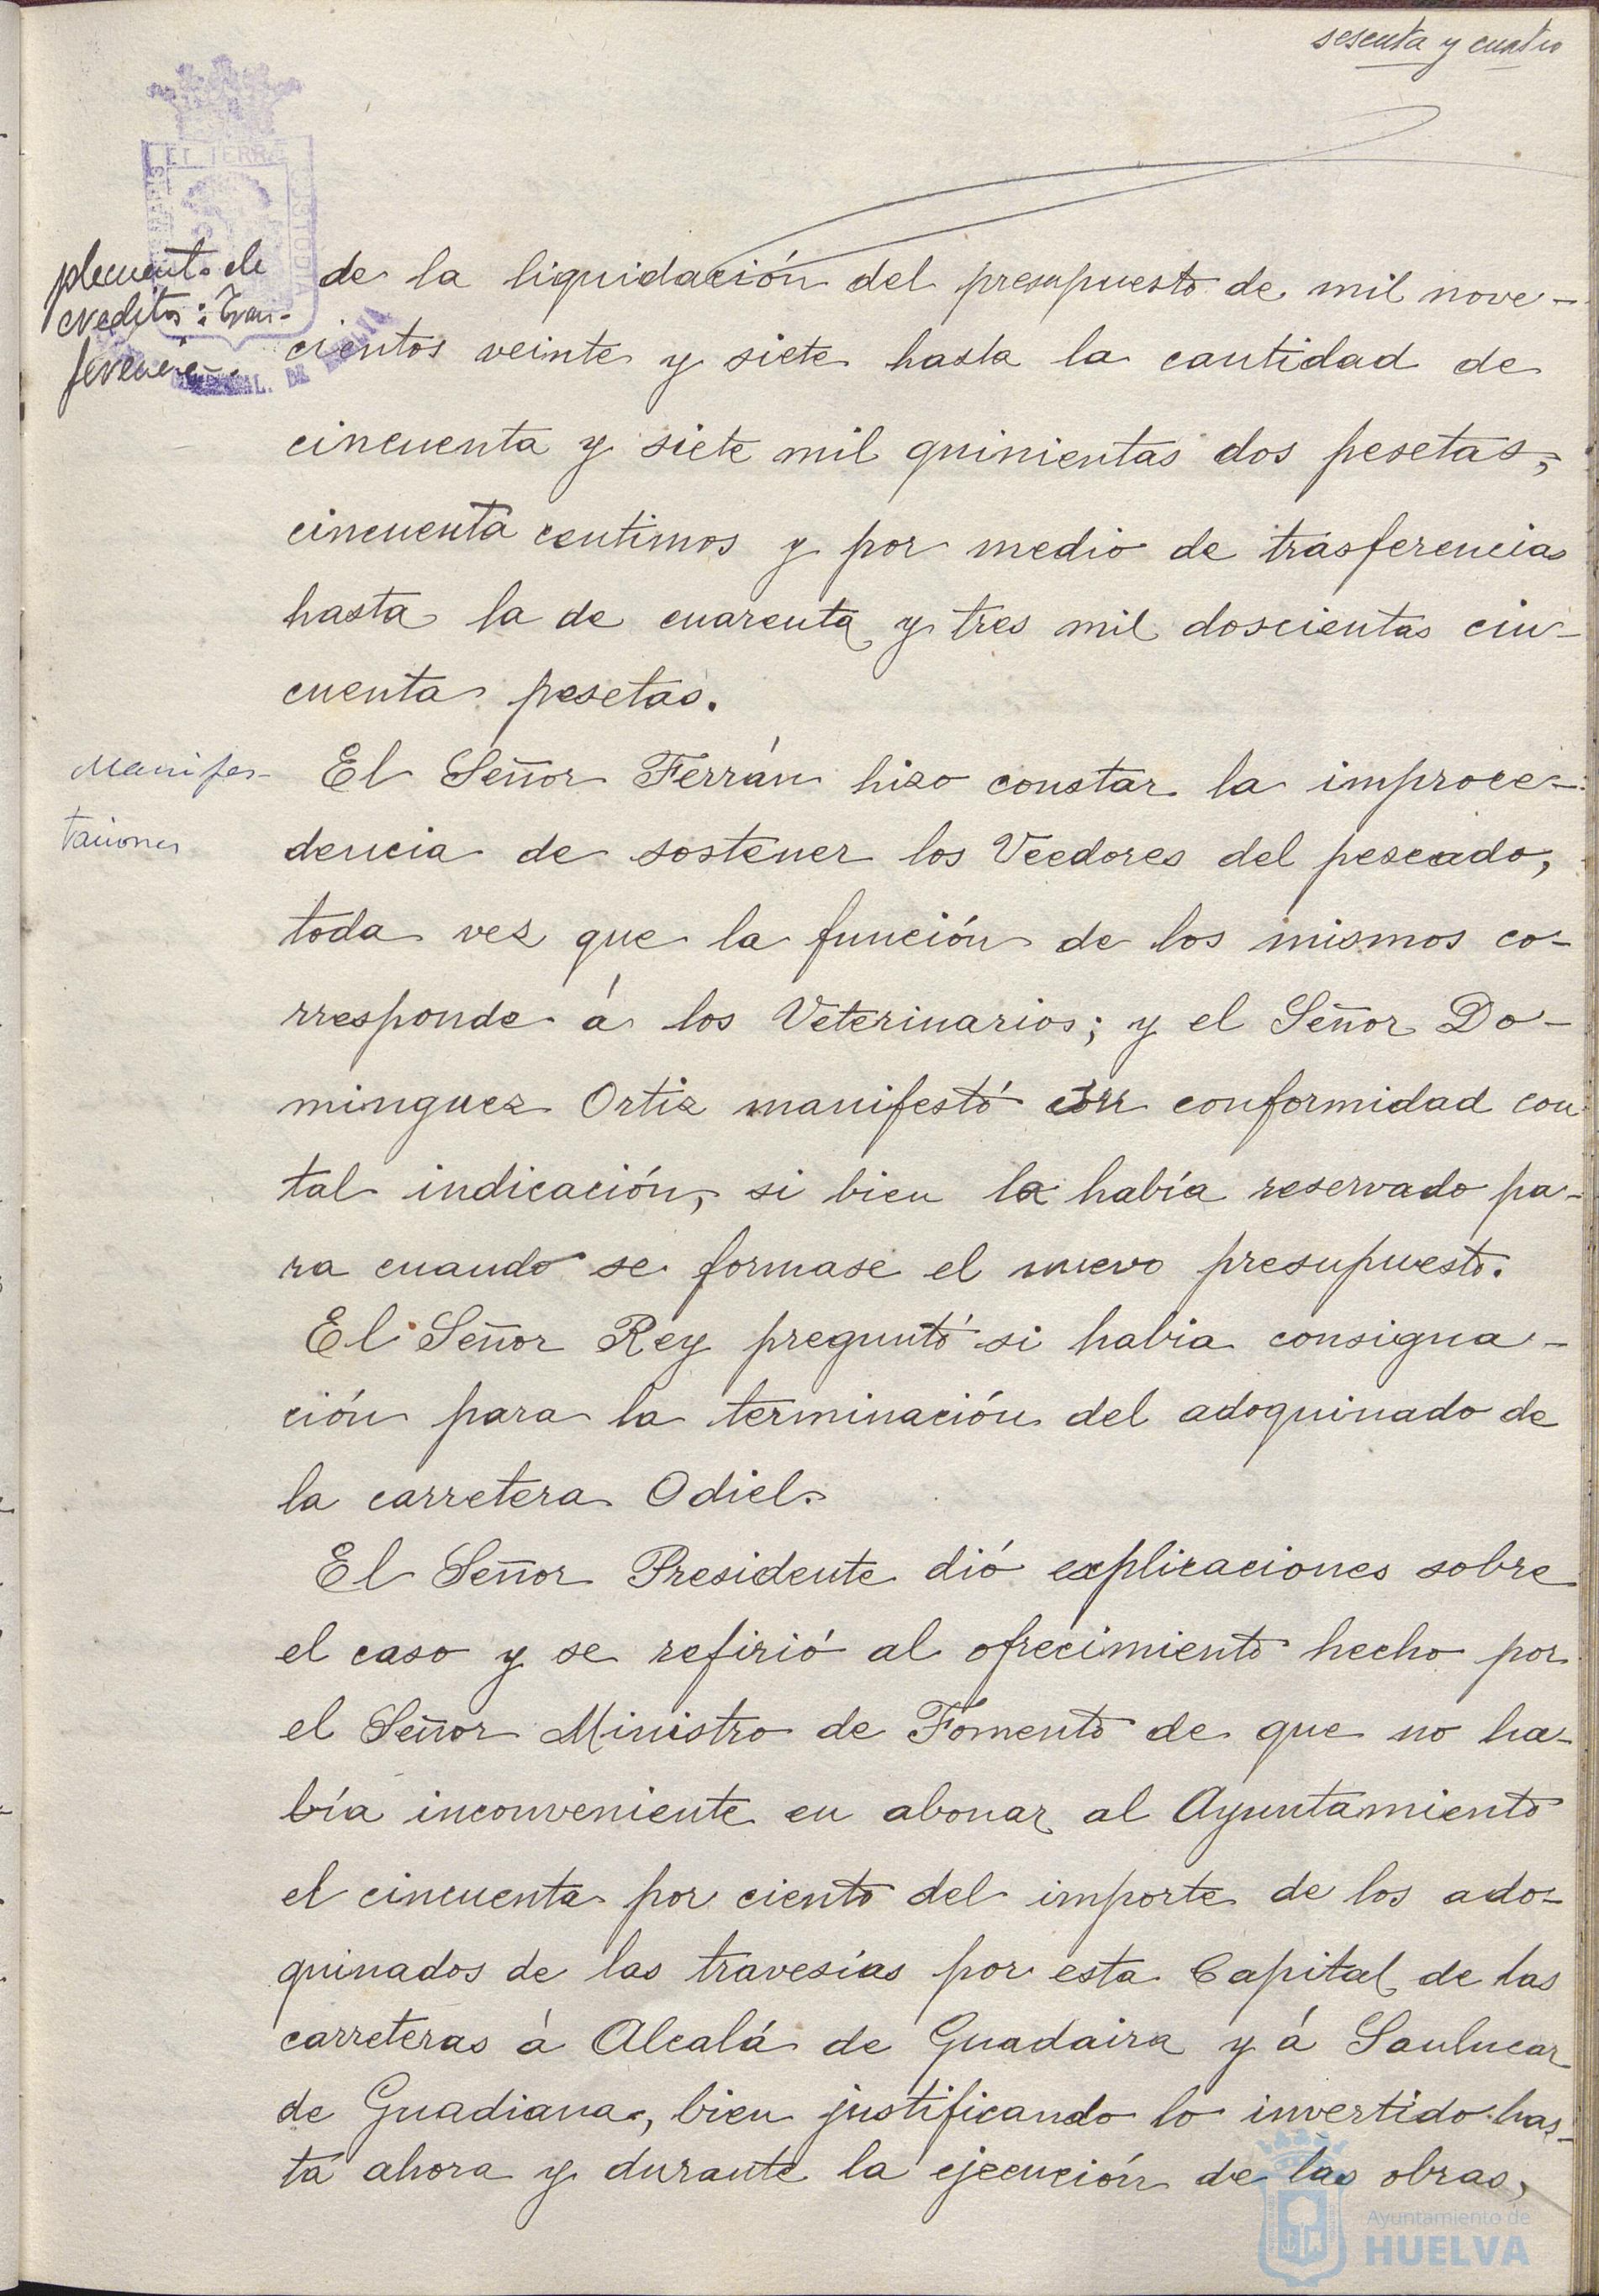 sesenta y cuatro
plemento de
creditos: Tran-
ferencia.
de la liquidación del presupuesto de mil nove-
cientos veinte y siete hasta la cantidad de
cincuenta y siete mil quinientas dos pesetas,
cincuenta centimos y por medio de trasferencias
hasta la de cuarenta y tres mil doscientas cin-
cuenta pesetas.
Manifes-
taciones
El Señor Ferrán hizo constar la improce-
dencia de sostener los Veedores del pescado,
toda vez que la función de los mismos co-
rresponde á los Veterinarios; y el Señor Do-
minguez Ortiz manifestó conformidad con
tal indicación, si bien la había reservado pa-
ra cuando se formase el nuevo presupuesto.
El Señor Rey preguntó si habia consigna-
ción para la terminación del adoquinado de
la carretera Odiel.
El Señor Presidente dió explicaciones sobre
el caso y se refirió al ofrecimiento hecho por
el Señor Ministro de Fomento de que no ha-
bía inconveniente en abonar al Ayuntamiento
el cincuenta por ciento del importe de los ado-
quinados de las travesías por esta Capital de las
carreteras á Alcalá de Guadaira y á Sanlucar
de Guadiana, bien justificando lo invertido has-
ta ahora y durante la ejecución de las obras,
Ayuntamiento de
HUELVA